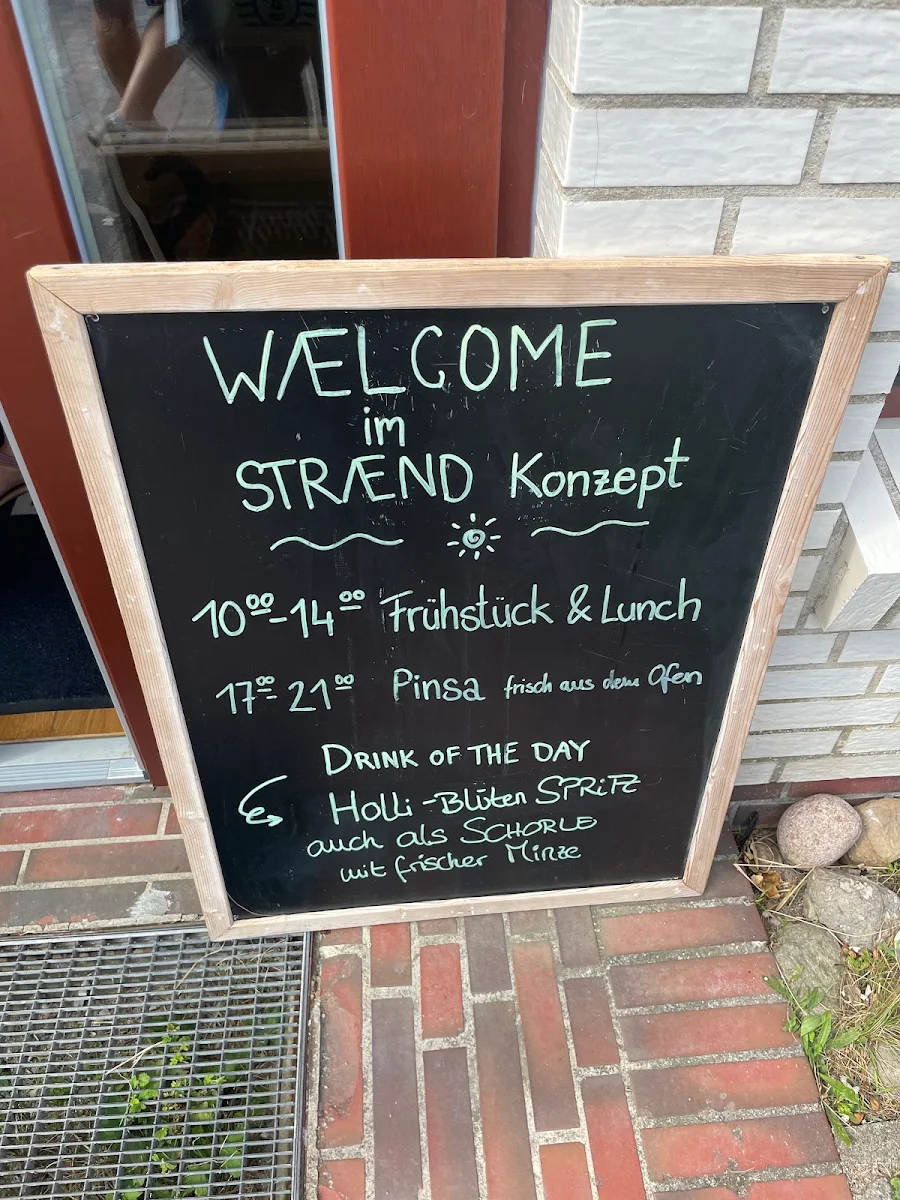 WÆLCOME
im
STRÆND Konzept
10⁰⁰-14⁰⁰ Frühstück & Lunch
17⁰⁰-21⁰⁰ Pinsa frisch aus dem Ofen
DRINK OF THE DAY
Holli-Blüten SPRITZ
auch als SCHORLE
mit frischer Minze